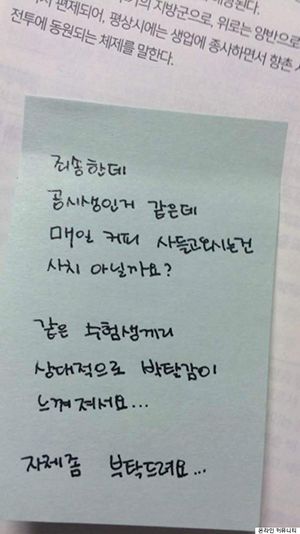 편제되어, 평상시에는 생업에 종사하면서 향촌
전투에 동원되는 체제를 말한다.
죄송한데
공시생인거 같은데
매일 커피 사들고오시는건
사치 아닐까요?
같은 수험생끼리
상대적으로 박탈감이
느껴져서요...
자제좀 부탁드려요...
온라인 커뮤니티